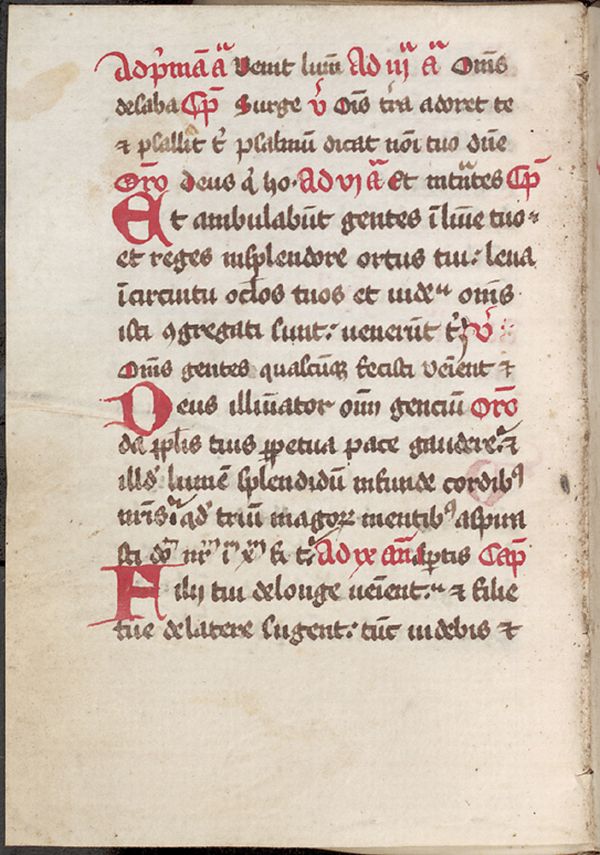 Ad p͛mā a͞ Venit lum̄ Ad iij a͞ Om̄s
de saba Cp̄ Surge v̊ Ois t͛ra adoret te
⁊ psallat t͛ psalmū dicat noi tuo dn̄e
Oro Deus q͛ ho· Ad vj a͞ Et intātes Cp̄
Et ambulabūt gentes ī lūīe tuo·
et reges insplendore ortus tui: leua
ī circuitu oclos tuos et uide·· om̄s
isti ꝯgregati sunt: uenerūt t͛ v̊:
Om̄s gentes quascūqꝫ fecisti veīent ⁊
Deus illūīator oīū genciū Oro
da pplis tuis ꝑpetua pace gaudere: ⁊
illd͛ lumē splendidū infunde cordibꝰ
nr̄is qd͛ triū magoꝝ mentibꝰ aspira
sti d͛ nr̄ i x͞ f t͛ Ad ix an̄ aptis Cap̄
Filij tui de longe veīent·· ⁊ filie
tue de latere sugent: tūc uidebis ⁊